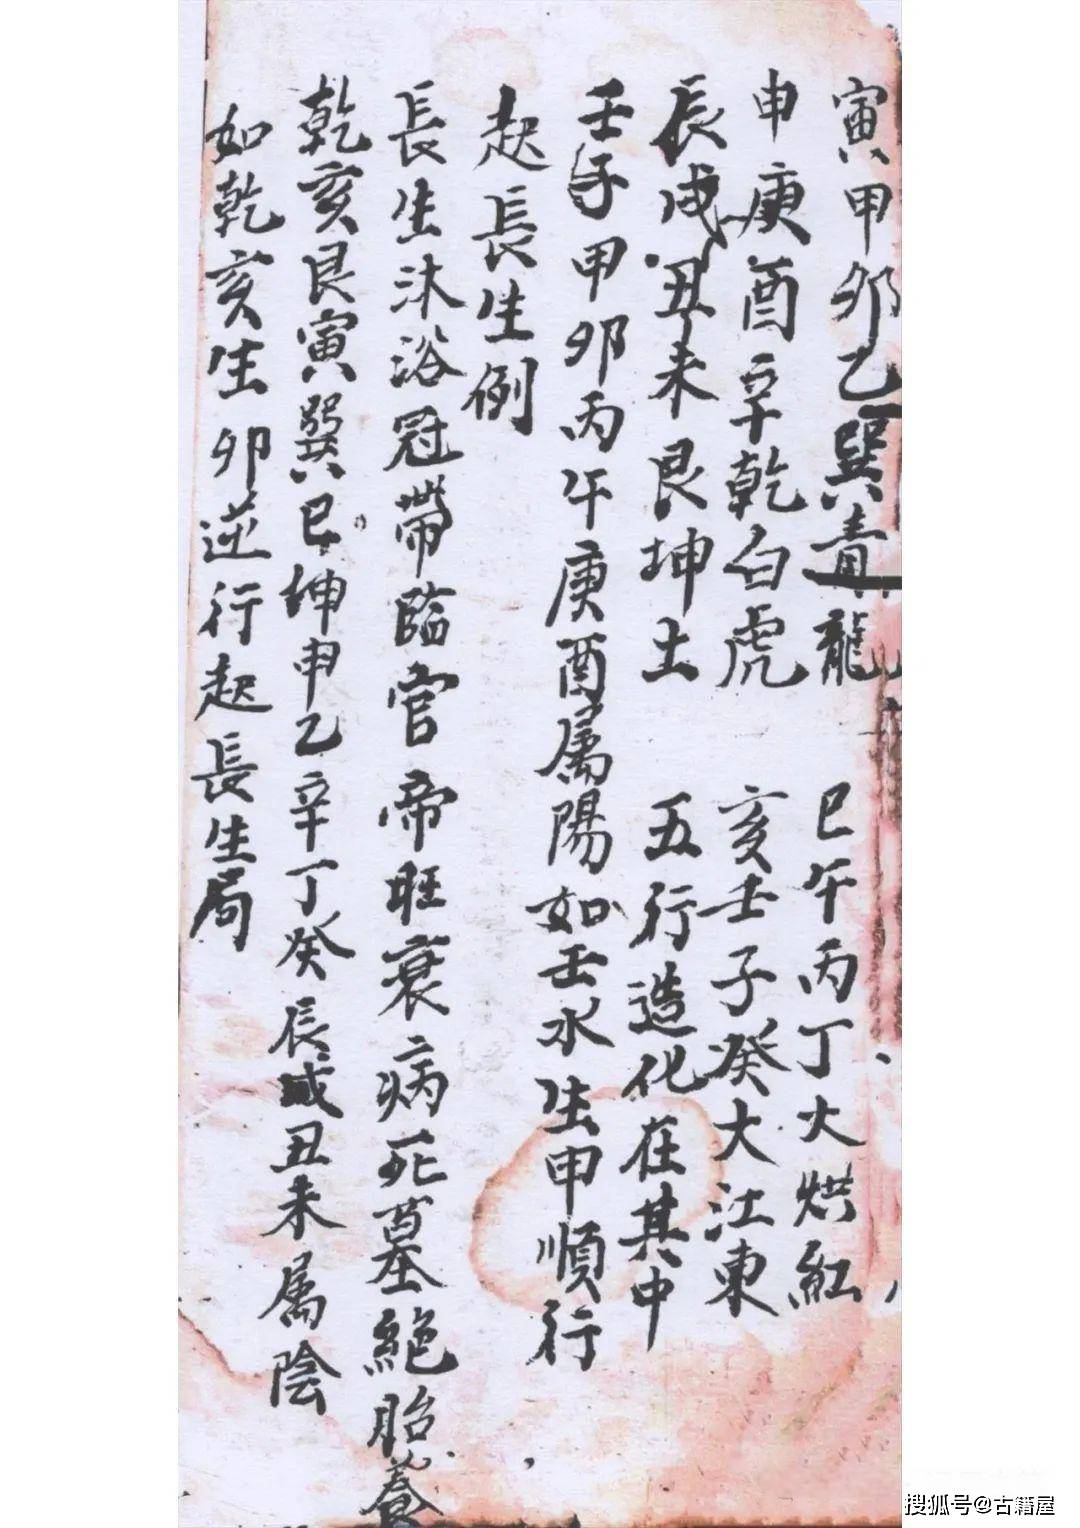 寅甲卯乙巽青龍　巳午丙丁火烘紅
申庚酉辛乾白虎　亥壬子癸大江東
辰戌丑未艮坤土　五行造化在其中
壬子甲卯丙午庚酉属陽如壬水生申順行
起長生例
長生沐浴冠帶臨官帝旺衰病死墓絕胎養
乾亥艮寅巽巳坤申乙辛丁癸辰戌丑未属陰
如乾亥生卯逆行起長生局
搜狐号@古籍屋